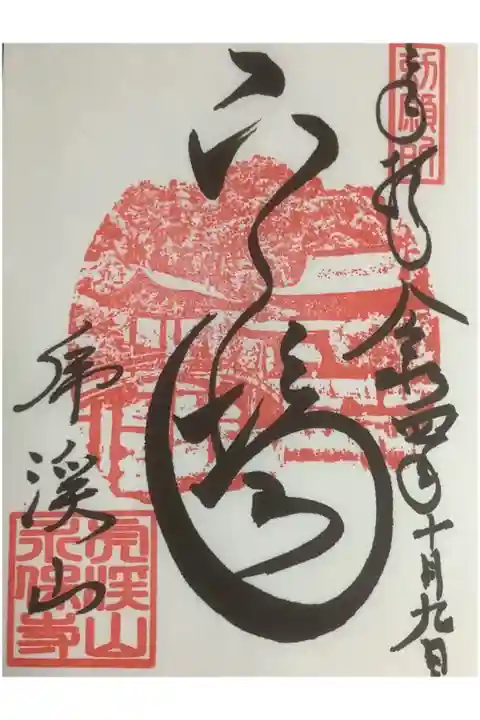 勅願所
奉拝 令和四年十月九日
虎渓山
虎渓山
永保寺